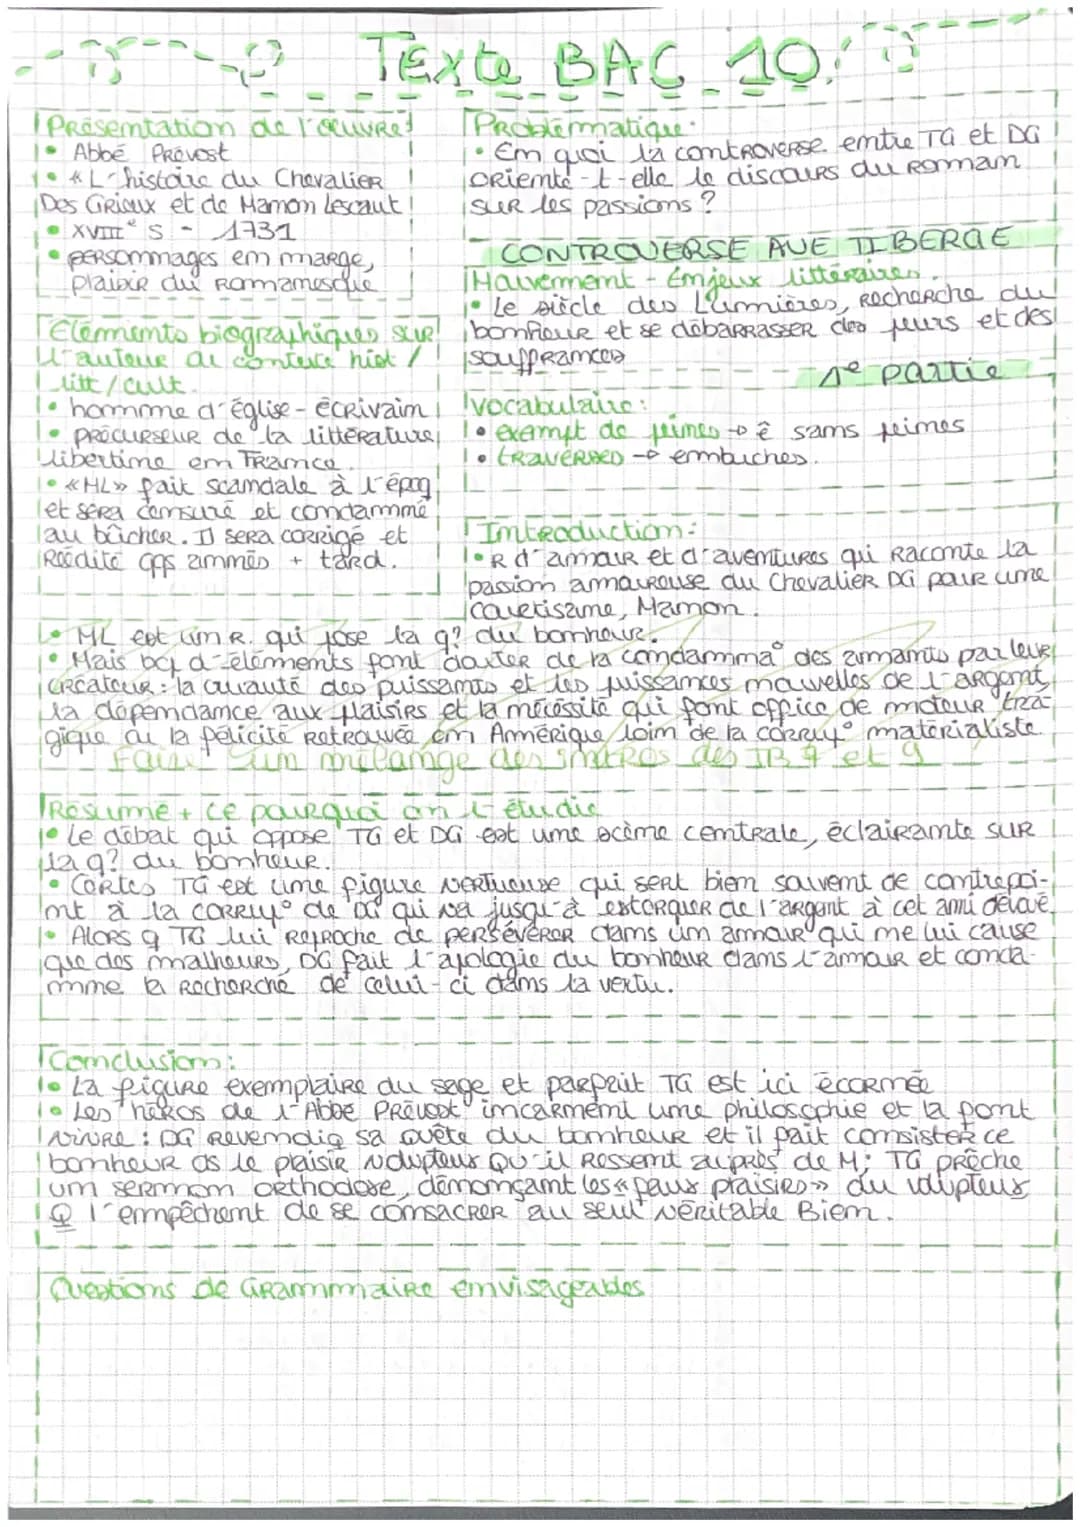 Texte BAC 10:
Présentation de l'œuvre:
• Abbé Prévost
• «L'histoire du Chevalier
Des Grieux et de Manon Lescaut
• XVIIIe S - 1731
• personnages en marge,
plaisir du romanesque
Eléments biographiques sur
l'auteur du contexte hist /
litt / cult.
• homme d'église - écrivain
• précurseur de la littérature
libertine en France.
• «ML» fait scandale à l'époq
et sera censuré et condamné
au bûcher. Il sera corrigé et
réédité qqs années + tard.
Problématique:
• En quoi la controverse entre TG et DG
oriente-t-elle le discours du roman
sur les passions ?
CONTROVERSE AVE TIBERGE
Mouvement - Enjeux littéraires.
• Le siècle des Lumières, recherche du
bonheur et se débarrasser des peurs et des
souffrances
1e partie
Vocabulaire:
• exempt de peines → ê sans peines
• traverses → embuches.
Introduction:
• R d'amour et d'aventures qui raconte la
passion amoureuse du Chevalier DG pour une
courtisane, Manon.
• ML est un R. qui pose la q? du bonheur.
• Mais bcp d'éléments font douter de la condamna° des amants par leur
créateur: la cruauté des puissants et les puissances nouvelles de l'argent,
la dépendance aux plaisirs et la nécessité qui font office de moteur tra
gique ou la félicité retrouvée en Amérique loin de la corrup° matérialiste.
Faire un mélange des intros des TB 7 et 9
Résumé + ce pourquoi on l'étudie
• Le débat qui oppose TG et DG est une scène centrale, éclairante sur
la q? du bonheur.
• Certes TG est une figure vertueuse qui sert bien souvent de contrepoi-
nt à la corrup° de DG qui va jusqu'à extorquer de l'argent à cet ami dévoué.
• Alors q TG lui reproche de persévérer dans un amour qui ne lui cause
que des malheurs, DG fait l'apologie du bonheur dans l'amour et conda-
mne la recherche de celui-ci dans la vertu.
Conclusion:
• La figure exemplaire du sage et parfait TG est ici écornée
• Les héros de l'Abbé Prévost incarnent une philosophie et la font
vivre: DG revendiq sa quête du bonheur et il fait consister ce
bonheur ds le plaisir voluptueux qu'il ressent auprès de M; TG prêche
un sermon orthodoxe, dénonçant les «faux plaisirs» du volupteux
Q l'empêchent de se consacrer au seul véritable Bien.
Questions de Grammaire envisageables